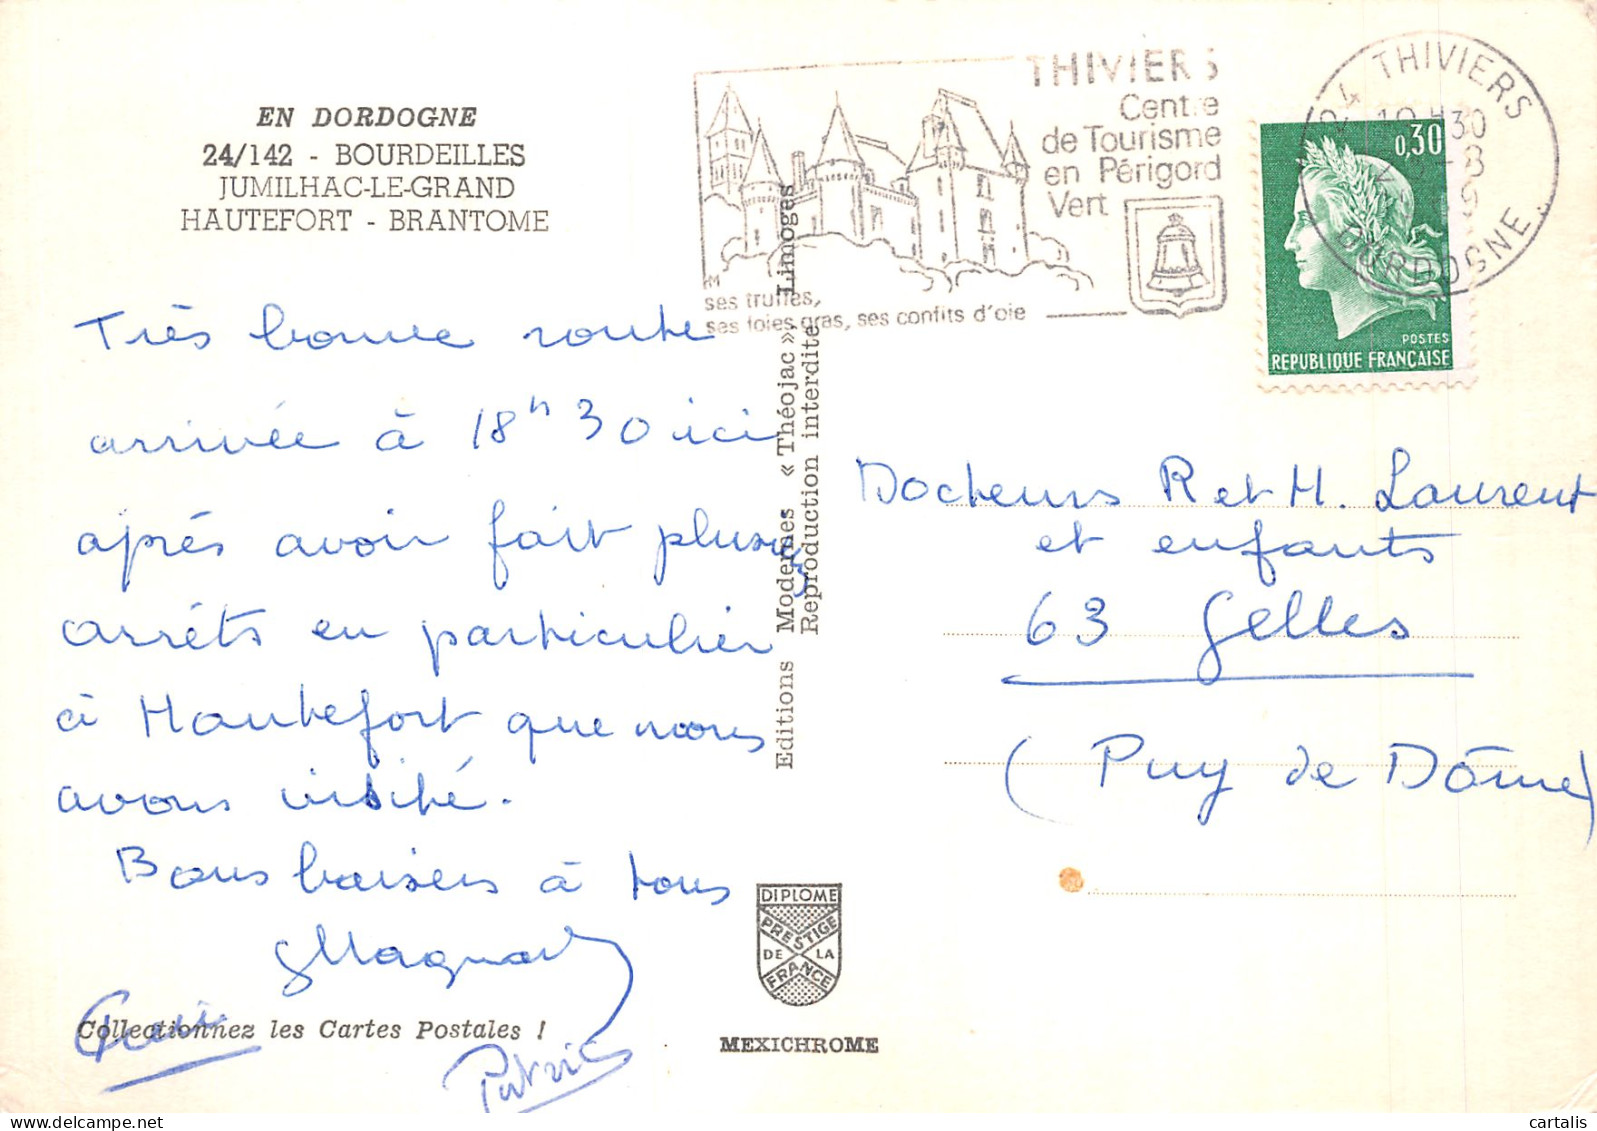 EN DORDOGNE
24/142 - BOURDEILLES
JUMILHAC-LE-GRAND
HAUTEFORT - BRANTOME
THIVIERS
Centre
de Tourisme
en Périgord
Vert
ses truffes,
ses foies gras, ses confits d'oie
24 THIVIERS
DORDOGNE
0,30
POSTES
REPUBLIQUE FRANÇAISE
Très bonne route
arrivée à 18h 30 ici
après avoir fait plusieurs
arrêts en particulier
à Hautefort que nous
avons visité.
Bons baisers à tous
Patrice
Collectionnez les Cartes Postales !
Editions Modernes « Théojac » Limoges
Reproduction interdite
DIPLOME
PRESTIGE
DE LA
FRANCE
MEXICHROME
Docteurs R et H. Laurent
et enfants
63 Gelles
(Puy de Dôme)
cartalis
delcampe.net